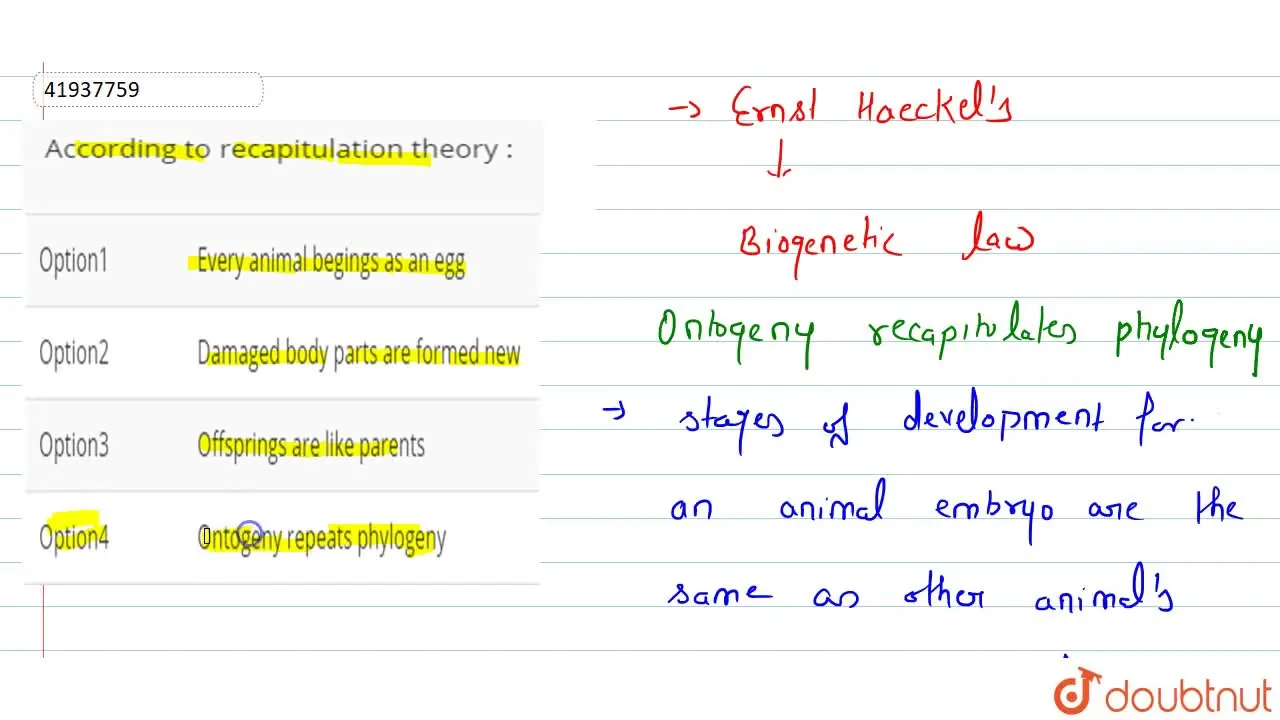 41937759
According to recapitulation theory :
Option1 Every animal begings as an egg
Option2 Damaged body parts are formed new
Option3 Offsprings are like parents
Option4 Ontogeny repeats phylogeny
→ Ernst Haeckel's
↓
Biogenetic law
Ontogeny recapitulates phylogeny
→ stages of development for
an animal embryo are the
same as other animal's
doubtnut